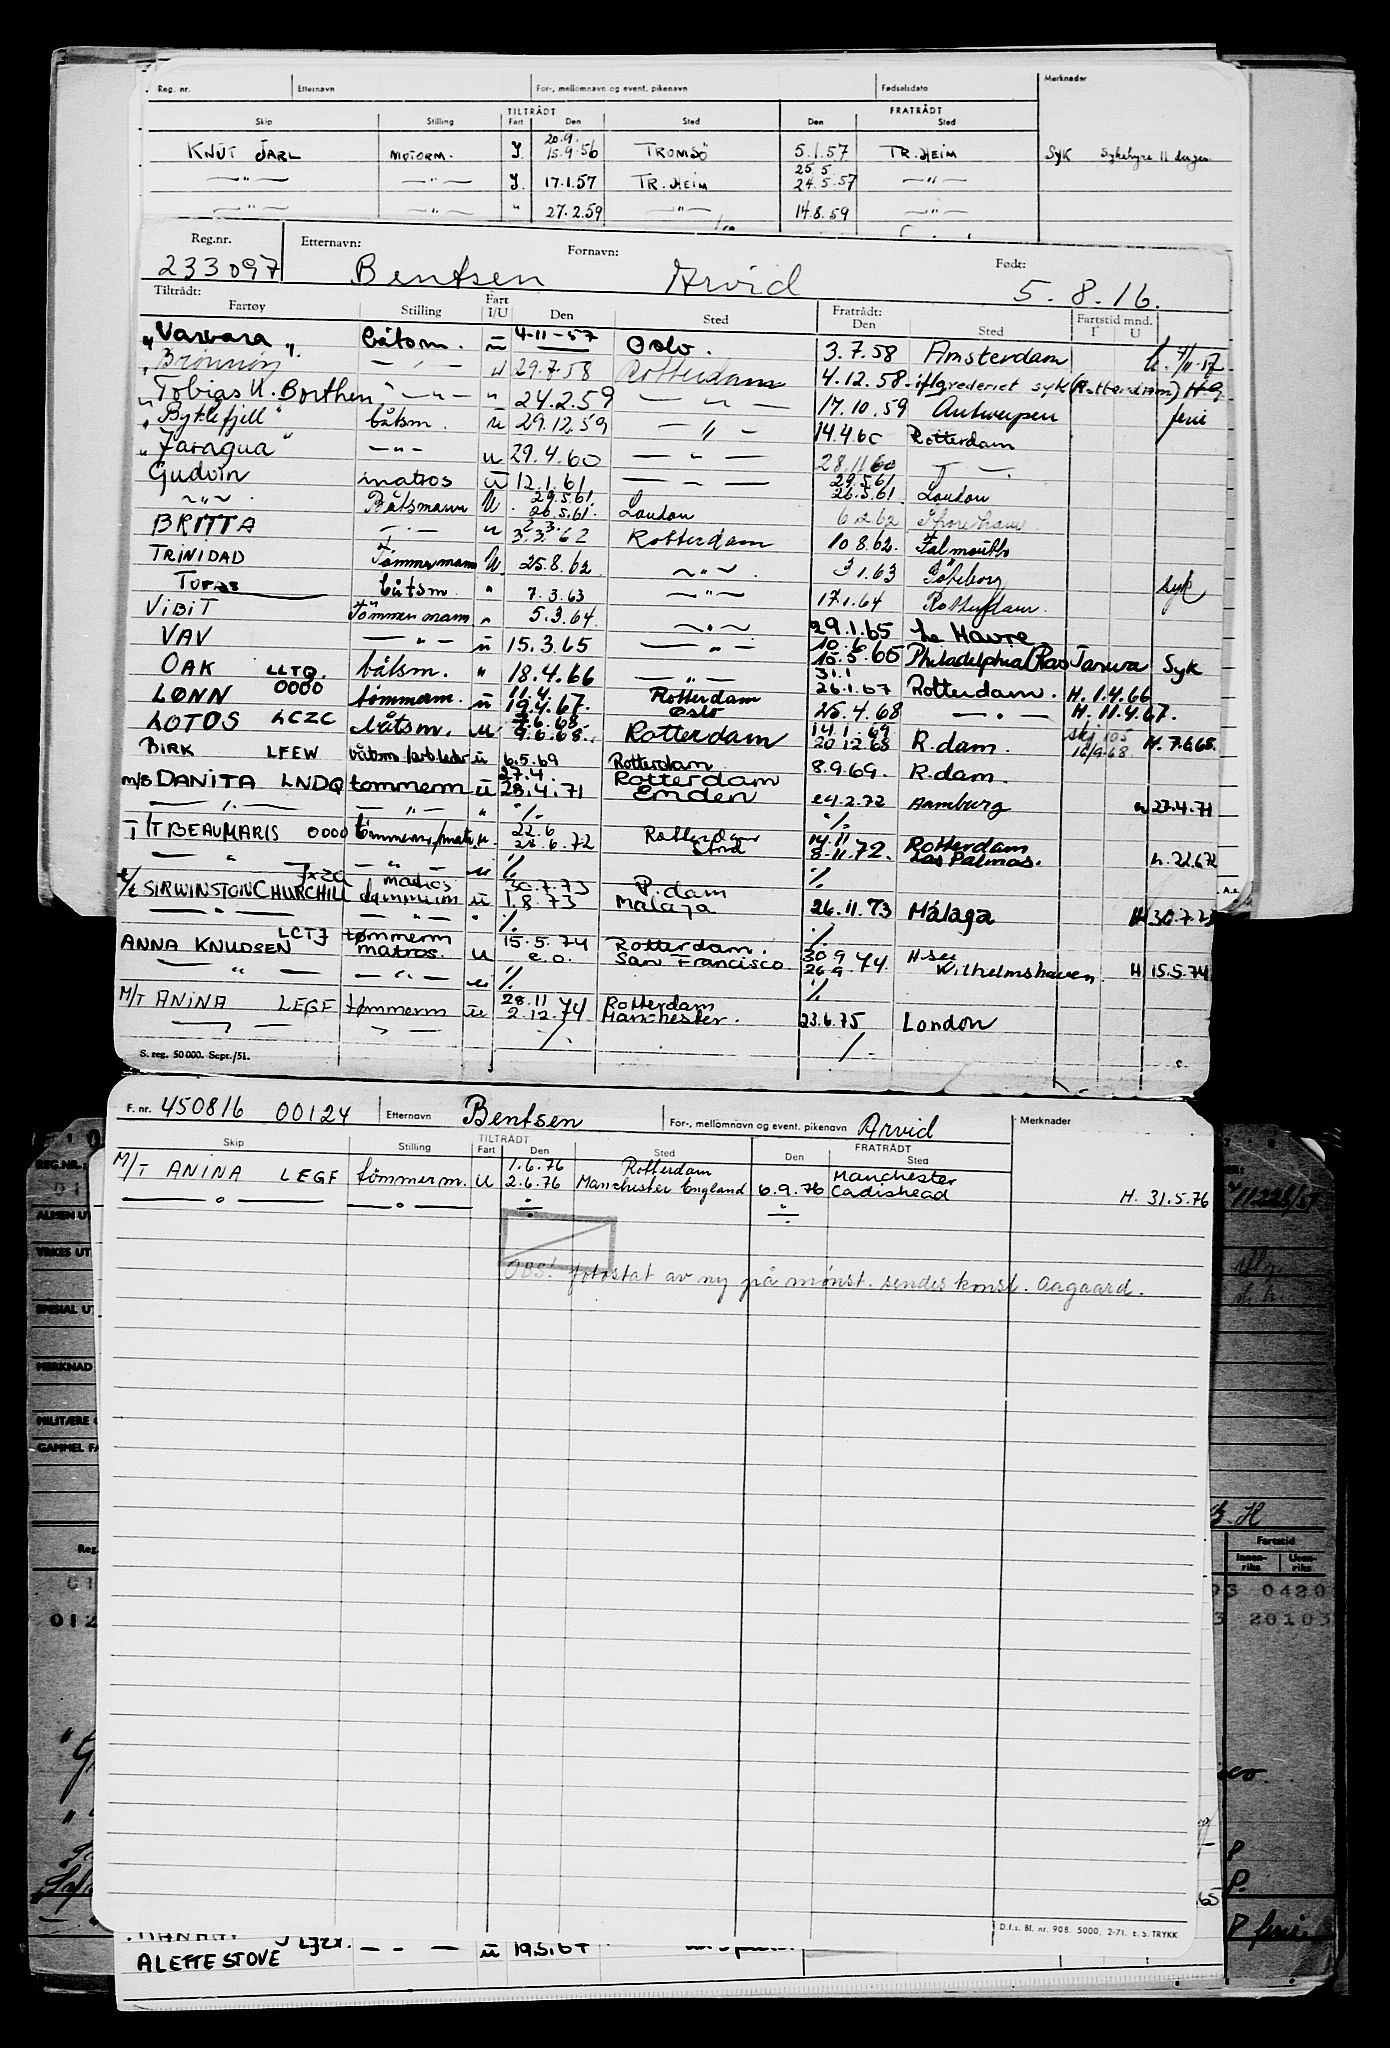 Reg. nr. Etternavn For-, mellomnavn og event. pikenavn Fødselsdato Merknader
TILTRÅDT FRATRÅDT
Skip Stilling Fart Den Sted Den Sted
20.9.
KNUT JARL MOTORM. I. 15.9.56 TROMSÖ 5.1.57 TR.HEIM SYK Sykehyre 11 dager
25.5
—"— —"— I. 17.1.57 TR.HEIM 24.5.57 —"—
—"— —"— " 27.2.59 —"— 14.8.59 —"—
Reg.nr. Etternavn: Fornavn: Født:
233097 Bentsen Arvid 5.8.16.
Tiltrådt: Fratrådt: Fartstid mnd.
Fartøy Stilling Fart I/U Den Sted Den Sted I U
"Varvara" båtsm. u 4-11-57 Oslo. 3.7.58 Amsterdam
"Brönnöy —"— u 29.7.58 Rotterdam 4.12.58 iflg rederiet syk (Rotterdam)
"Tobias U. Borthen" —"— " 24.2.59 —"— 17.10.59 Antwerpen ferie
"Byklefjell" båtsm. u 29.12.59 —"— 14.4.60 Rotterdam
"Jaragua" —"— u 29.4.60 —"— 28.11.60 —"—
Gudvin matros u 12.1.61 —"— 29.5.61
26.5.61 London
—"— Båtsmann U. 29.5.61.
26.5.61. London 6.2.62 Shoreham
BRITTA —"— u 3.3.62 Rotterdam 10.8.62. Falmouth
TRINIDAD Tömmermann U. 25.8.62 —"— 3.1.63 Göteborg syk
TOPAS båtsm. " 7.3.63 —"— 17.1.64 Rotterdam.
VIBIT Tömmermann " 5.3.64 —"— 29.1.65 Le Havre
VAV —"— u 15.3.65 —"— 10.6.65
15.5.65 Philadelphia (Ras Tanura Syk
OAK LLTQ. båtsm. " 18.4.66 —"— 31.1
26.1.67 Rotterdam. H. 1.4.66
LØNN 0000 tömmerm. u 11.4.
19.4.67. Rotterdam
Oslo 25.4.68 —"— H. 11.4.67.
LOTOS LCZC båtsm. u 7.6.68
9.6.68. Rotterdam 14.1.69
20.12.68 R.dam. 16/9-68 H. 7.6.68.
BIRK LFEW u 6.5.69 Rotterdam 8.9.69. R.dam.
m/s DANITA LNDQ tømmerm u 27.4.
28.4.71 Rotterdam
Emden 24.2.72 Hamburg 27.4.71
—"— —"— " ./. ./.
T/T BEAUMARIS 0000 tömmerm/matr. u. 22.6
28.6.72 Rotterdam 14.11
8.11.72. Rotterdam
Las Palmas. h. 22.6.72
—"— —"— u ./. ./.
SIR WINSTON CHURCHILL matros
tømmerm u 30.7.73
1.8.73 R.dam
Malaga 26.11.73 Málaga H 30.7.73
—"— —"— " ./. ./.
ANNA KNUDSEN LCTJ tømmerm
matros. u 15.5.74
e.o. Rotterdam.
San Francisco 30.9
26.9.74 H-see
Wilhelmshaven. H 15.5.74
—"— —"— u ./. ./.
M/T ANINA LEGF tømmerm u 28.11
2.12.74 Rotterdam
Manchester. 23.6.75 London
S. reg. 50 000. Sept./51.
F. nr. 450816 00124 Etternavn Bentsen For-, mellomnavn og event. pikenavn Arvid Merknader
TILTRÅDT FRATRÅDT
Skip Stilling Fart Den Sted Den Sted
M/T ANINA LEGF tömmerm. u 1.6.76
2.6.76 Rotterdam
Manchester England 6.9.76 Manchester
Cadishead H. 31.5.76
OBS! fotostat av ny på mønst. sendes konsl. Aagaard.
D.f.s. Bl. nr. 908. 5000, 2-71. E. S. TRYKK
REG.NR.:
ALMEN UT
YRKES UT
SPESIAL UT
MERKNAD
MILITÆRE
GAMMEL FA
Fartstid
Innen-riks Uten-riks
0420
20103
ALETTE STOVE — " — u